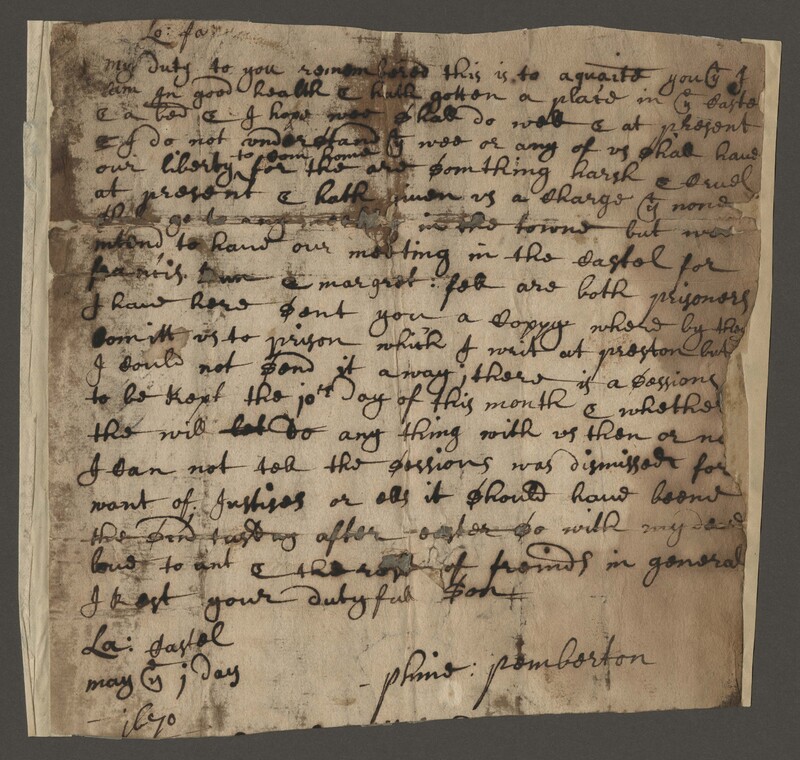 Lo: fa
my duty to you remembred this is to aquaite you yt I
am in good health & hath gotten a place in ye Castle
& a bed & I hope wee shall do well & at present
& I do not understand yt wee or any of vs shal have
our liberty to com home for the are somthing harsh & Cruel
at present & hath given vs a Charge yt none
go to any in the towne but wee
intend to have our meeting in the Castel for
francis & margret: fell are both prisoners
I have here sent you a Coppy where by they
Comitt vs to prison which I writ at preston but
I Could not send it away, there is a Sessions
to be kept the 10th Day of this month & whether
the will let do any thing with vs then or no
I Can not tell the Sessions was dismissed for
want of Justises or ells it should have beene
the after easter so with my deare
love to ant & the rest of freinds in general
I Rest your dutyful Son
La: Castel
may ye j day
phine: pemberton
1670